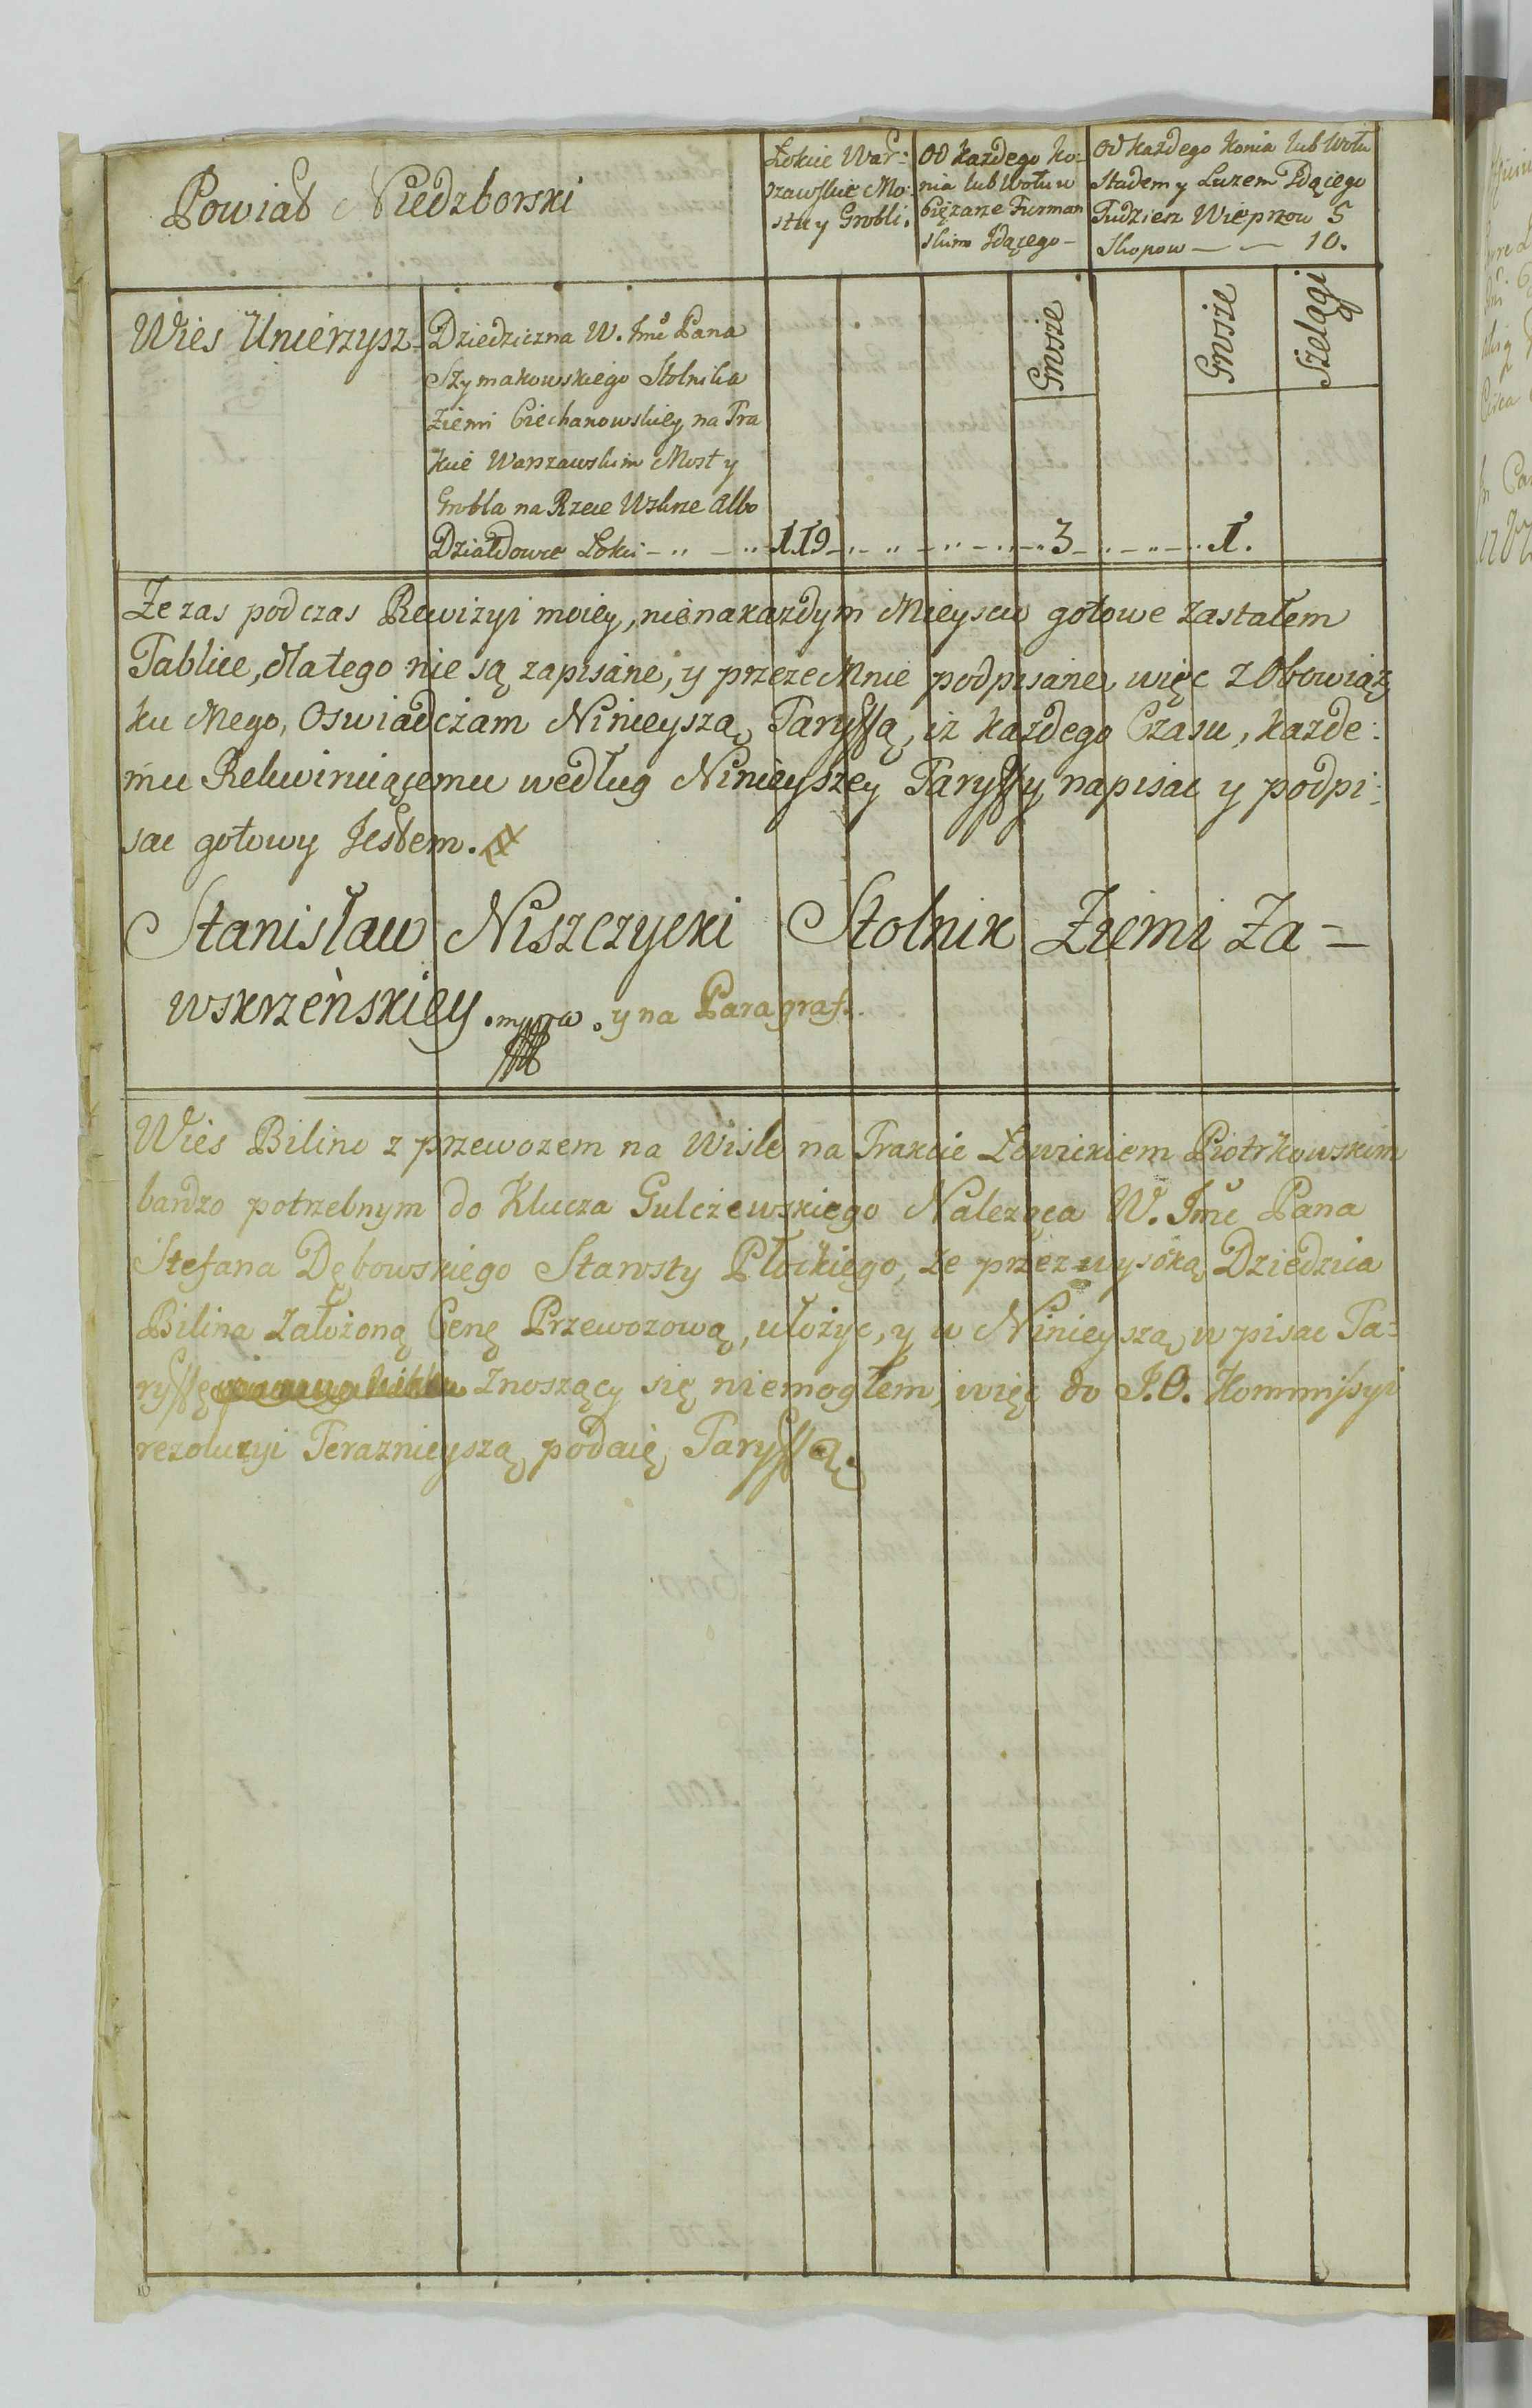 Powiat Niedzborski
Łokcie War:
szawskie Mo:
stu y Grobli.
Od każdego ko:
nia lub wołu w
Ciężarze Furman
skim Idącego –
Od każdego konia lub wołu
Stadem y Luzem Idącego
Tudziesz Wieprzow 5
Skopow — — 10.
Grosze
Grosze
Szelągi
Wies Unierzysz.
Dziedziczna W. Jmć Pana
Szymakowskiego Stolnika
Ziemi Ciechanowskiey na Tra
kcie Warszawskim Most y
Grobla na Rzece Wkrze albo
Działdowce Łokci 119 3 1.
Ze zas podczas Rewizyi moiey, nienakazdym Mieyscu gotowe zastałem
Tablice, dlatego nie są zapisane, y przezemnie podpisane, więc z Obowiąz
ku Mego, Oswiadczam Ninieyszą Taryffą, iż każdego Czasu, każde:
mu Rekwiruiącemu według Ninieyszey Taryffy napisac y podpi:
sac gotowy Jestem.
Stanisław Niszczycki Stolnik Ziemi Za=
wskrzeńskiey. mppra. y na Paragraf.
Wies Bilino z przewozem na Wiśle na Trakcie Łowickiem Piotrkowskim
bardzo potrzebnym do Klucza Gulczewskiego Naleząca W. Jmć Pana
Stefana Dębowskiego Starosty Płockiego, że przez wysoką Dziedzica
Bilina Założoną Cenę Przewozową, ułożyc, y w Ninieyszą wpisac Ta=
ryffę Znoszący się niemogłem, więc do J.O. Kommissyi
rezolucyi Teraznieyszą podaię Taryffą.